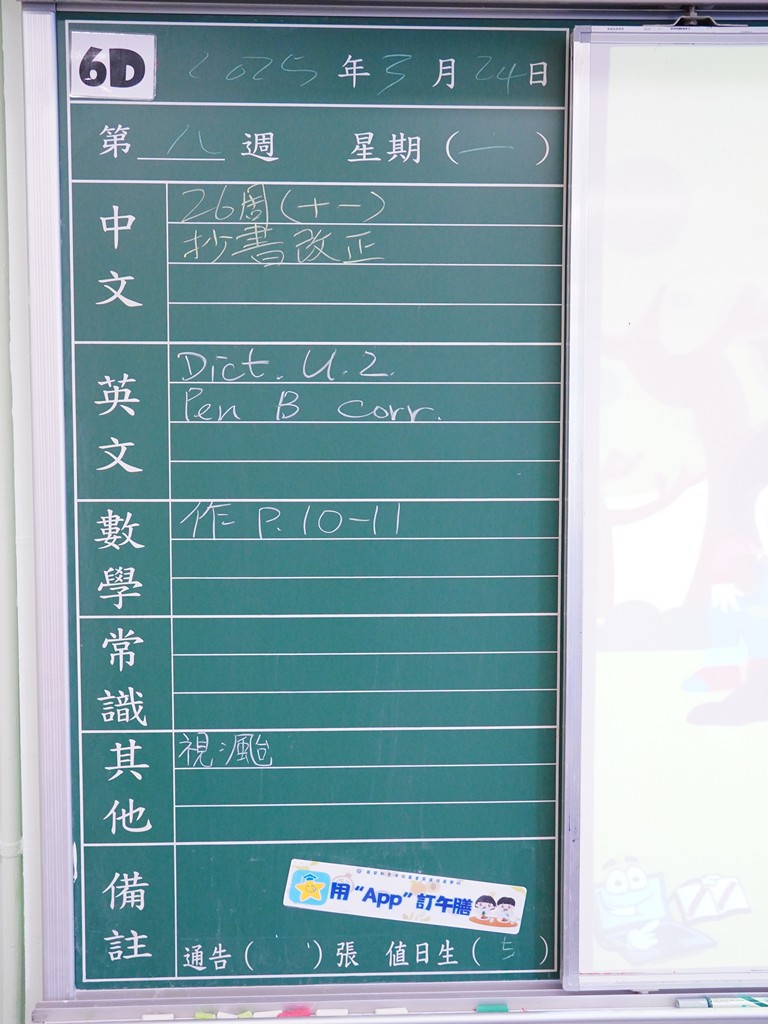 6D 2025年3月24日
第八週 星期(一)
中文
26周(十一)
抄書改正
英文
Dict. U.2.
Pen B Corr.
數學
作 P.10-11
常識
其他
視:颱
備註
用“App”訂午膳
通告( )張 值日生(5)